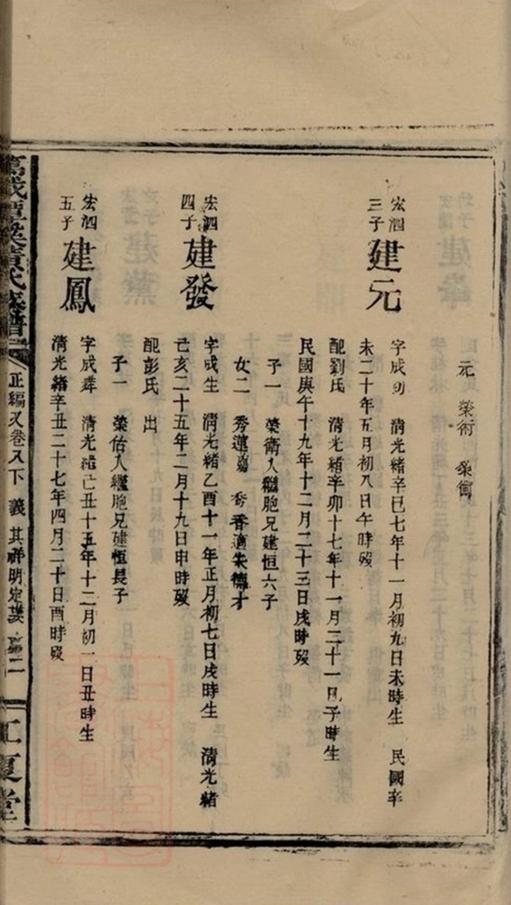 元 榮術
宏泗三子 建元
字成 清光緒辛巳七年十一月初九日未時生 民國辛
未二十年五月初八日午時殁
配劉氏 清光緒辛卯十七年十一月二十一日子時生
民國庚午十九年十二月二十三日戌時殁
子一 榮衛入繼胞兄建恒六子
女二 秀蓮 秀香適朱德才
宏泗四子 建發
字成生 清光緒乙酉十一年正月初七日戌時生 清光緒
己亥二十五年二月十九日申時殁
配彭氏 出
子一 榮佑入繼胞兄建恒長子
宏泗五子 建鳳
字成 清光緒己丑十五年十二月初一日丑時生
清光緒辛丑二十七年四月二十日酉時殁
氏族譜
正編又卷又下 義 其祥明定
江夏堂